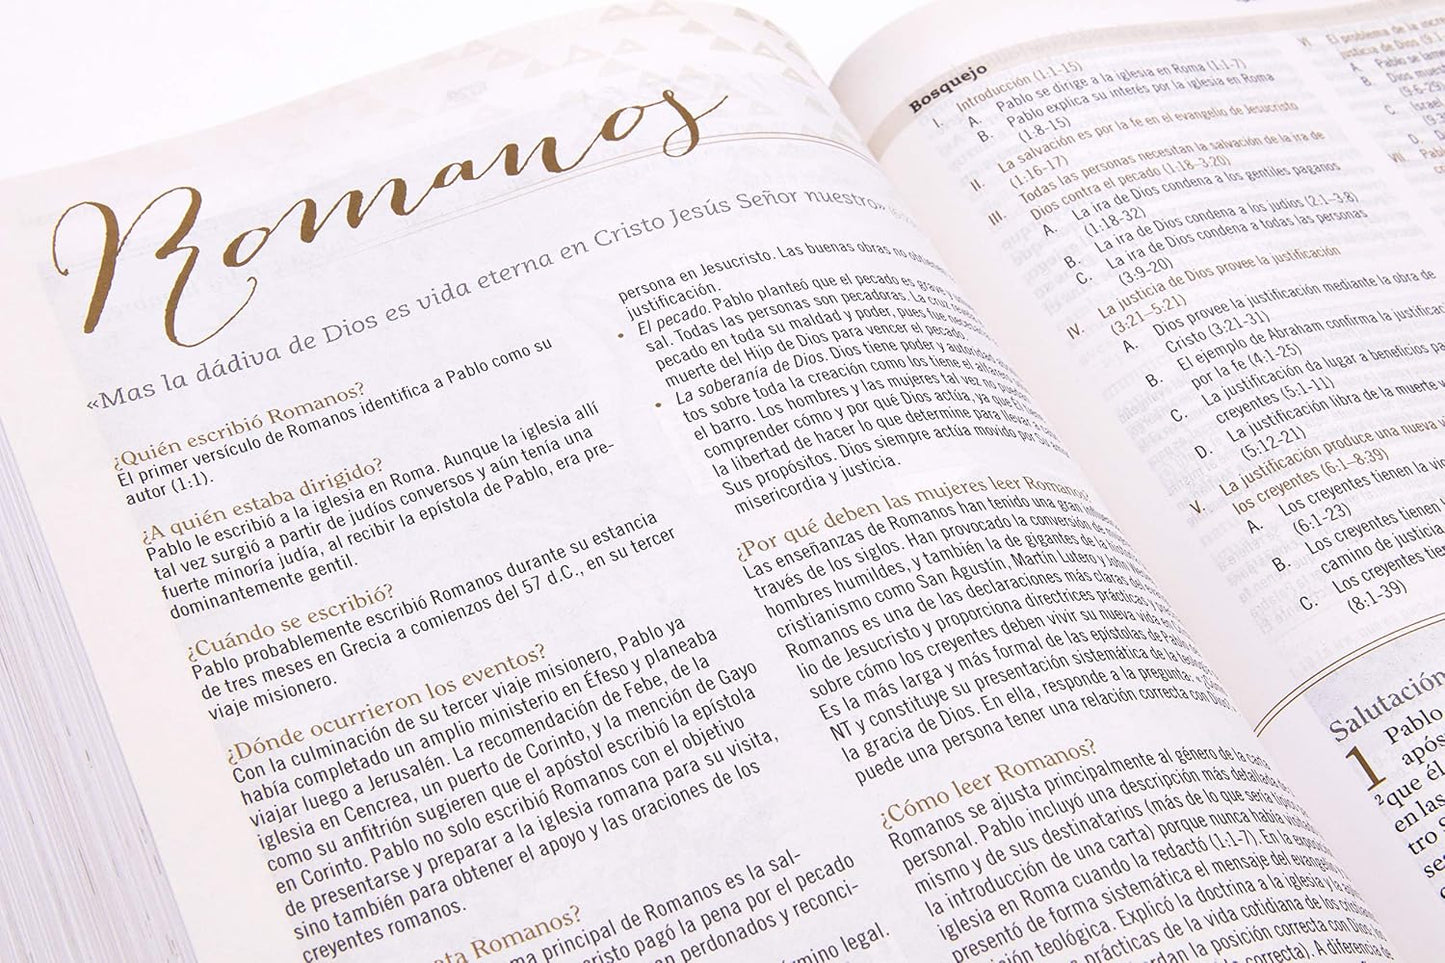 Romanos
«Mas la dádiva de Dios es vida eterna en Cristo Jesús Señor nuestro»
¿Quién escribió Romanos?
El primer versículo de Romanos identifica a Pablo como su
autor (1:1).
¿A quién estaba dirigido?
Pablo le escribió a la iglesia en Roma. Aunque la iglesia allí
tal vez surgió a partir de judíos conversos y aún tenía una
fuerte minoría judía, al recibir la epístola de Pablo, era pre-
dominantemente gentil.
¿Cuándo se escribió?
Pablo probablemente escribió Romanos durante su estancia
de tres meses en Grecia a comienzos del 57 d.C., en su tercer
viaje misionero.
¿Dónde ocurrieron los eventos?
Con la culminación de su tercer viaje misionero, Pablo ya
había completado un amplio ministerio en Éfeso y planeaba
viajar luego a Jerusalén. La recomendación de Febe, de la
iglesia en Cencrea, un puerto de Corinto, y la mención de Gayo
como su anfitrión sugieren que el apóstol escribió la epístola
en Corinto. Pablo no solo escribió Romanos con el objetivo
de presentarse y preparar a la iglesia romana para su visita,
sino también para obtener el apoyo y las oraciones de los
creyentes romanos.
Romanos?
principal de Romanos es la sal-
cristo pagó la pena por el pecado
perdonados y reconci-
término legal.
persona en Jesucristo. Las buenas obras no
justificación.
• El pecado. Pablo planteó que el pecado es grave
sal. Todas las personas son pecadoras. La cruz
pecado en toda su maldad y poder, pues fue
muerte del Hijo de Dios para vencer el pecado.
• La soberanía de Dios. Dios tiene poder y autoridad
tos sobre toda la creación como los tiene el alfarero
el barro. Los hombres y las mujeres tal vez no
comprender cómo y por qué Dios actúa, ya que Él
la libertad de hacer lo que determine para llevar a
Sus propósitos. Dios siempre actúa movido por Su
misericordia y justicia.
¿Por qué deben las mujeres leer Romanos?
Las enseñanzas de Romanos han tenido una gran
través de los siglos. Han provocado la conversión de
hombres humildes, y también la de gigantes de la
cristianismo como San Agustín, Martín Lutero y John
Romanos es una de las declaraciones más claras del
lio de Jesucristo y proporciona directrices prácticas y
sobre cómo los creyentes deben vivir su nueva vida en
Es la más larga y más formal de las epístolas de Pablo
NT y constituye su presentación sistemática de la
la gracia de Dios. En ella, responde a la pregunta:
puede una persona tener una relación correcta con
¿Cómo leer Romanos?
Romanos se ajusta principalmente al género de la carta
personal. Pablo incluyó una descripción más detallada
mismo y de sus destinatarios (más de lo que sería
la introducción de una carta) porque nunca había
iglesia en Roma cuando la redactó (1:1-7). En la
presentó de forma sistemática el mensaje del
teológica. Explicó la doctrina a la iglesia y la
prácticas de la vida cotidiana de los
la posición correcta con Dios
correcta). A diferencia de
Bosquejo
I. Introducción (1:1-15)
A. Pablo se dirige a la iglesia en Roma (1:1-7)
B. Pablo explica su interés por la iglesia en Roma
(1:8-15)
II. La salvación es por la fe en el evangelio de Jesucristo
(1:16-17)
III. Todas las personas necesitan la salvación de la ira de
Dios contra el pecado (1:18–3:20)
A. La ira de Dios condena a los gentiles paganos
(1:18-32)
B. La ira de Dios condena a los judíos (2:1–3:8)
C. La ira de Dios condena a todas las personas
(3:9-20)
IV. La justicia de Dios provee la justificación
(3:21–5:21)
A. Dios provee la justificación mediante la obra de
Cristo (3:21-31)
B. El ejemplo de Abraham confirma la
por la fe (4:1-25)
C. La justificación da lugar a beneficios
creyentes (5:1-11)
D. La justificación libra de la muerte
(5:12-21)
V. La justificación produce una nueva
los creyentes (6:1–8:39)
A. Los creyentes tienen la
(6:1-23)
B. Los creyentes tienen
camino de justicia
C. Los creyentes
(8:1-39)
VI. El problema de la
justicia de Dios
A. Pablo se
B. Dios
(9:6-29)
C. Israel
D.
VII.
Salutación
1 Pablo
2 que él
en las
tro